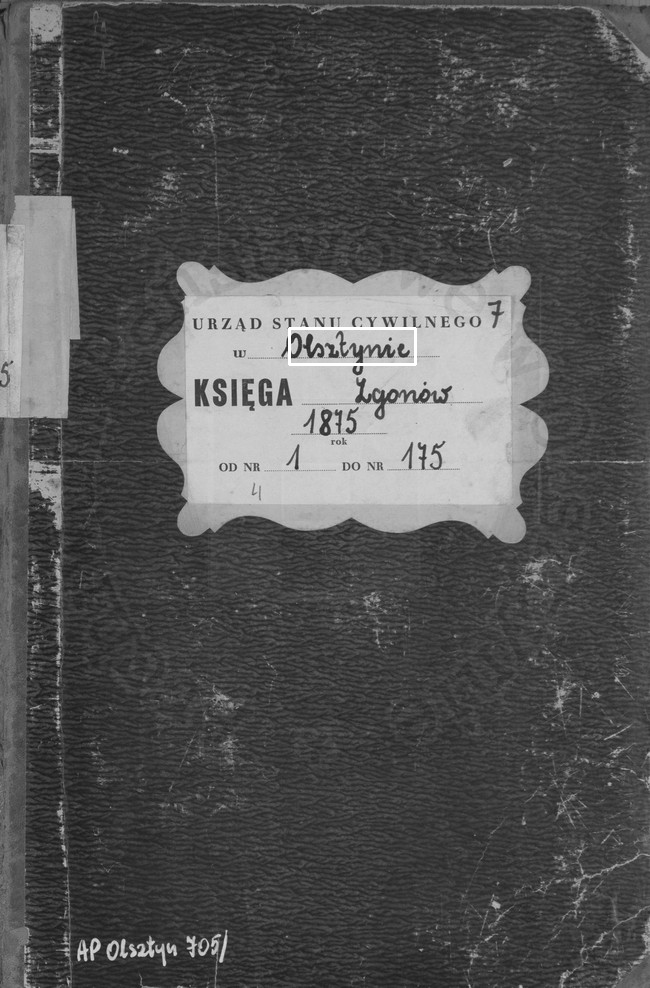 URZĄD STANU CYWILNEGO 7
w Olsztynie
KSIĘGA Zgonów
1875
rok
OD NR 1 DO NR 175
4
5
AP Olsztyn 705/